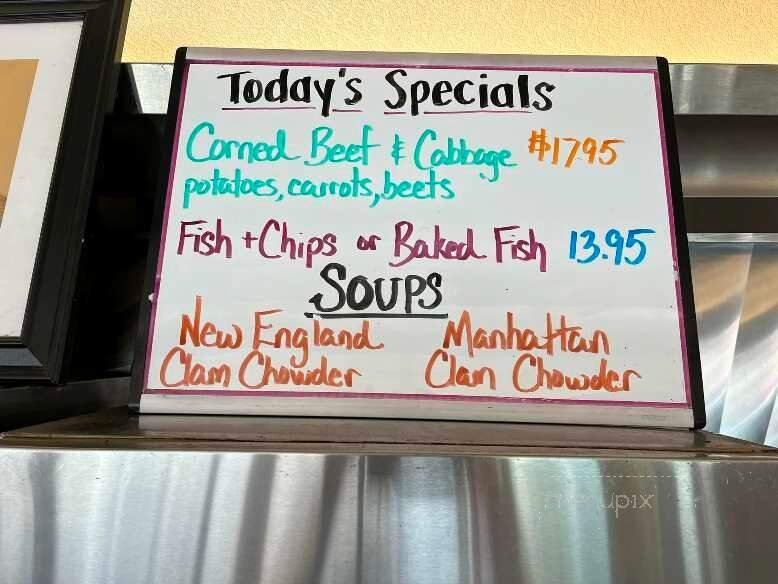 Today's Specials
Corned Beef & Cabbage $17.95
potatoes, carrots, beets
Fish + Chips or Baked Fish 13.95
Soups
New England Manhattan
Clam Chowder Clam Chowder
menupix